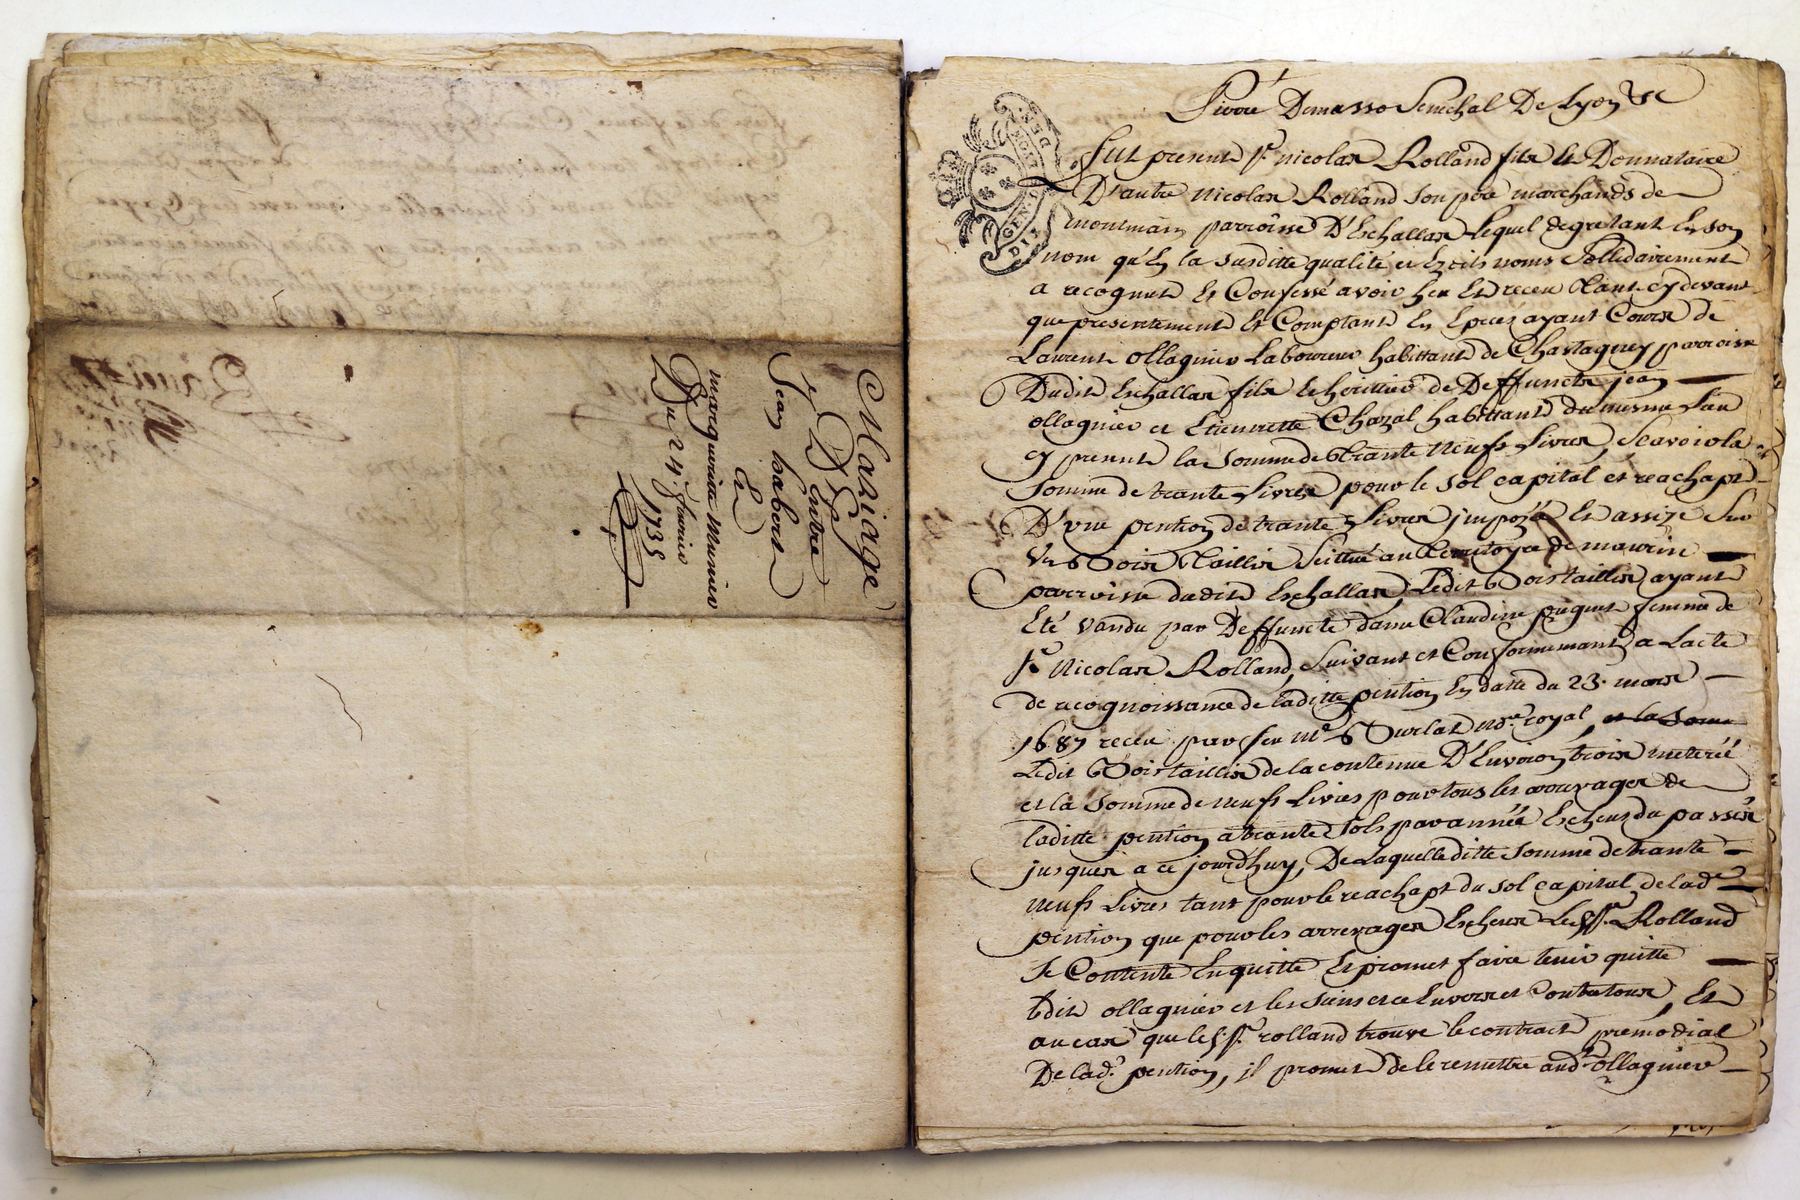 Mariage
D'Entre
Jean habert
Et
margueritte Munier
Du 24e. feuvrier
1735
Pierre Demasso Senechal De Lyon &c
GEN. D LION
DIX DEN
Fut present sr. nicolas Rolland fils Et Donnataire
D'autre Nicolas Rolland son pere marchands de
montmain parroisse D'Eschallas Lequel de gré tant En son
nom qu'En la susditte qualité et Esdits noms Sollidairement
a recognut Et Confessé avoir heu Et receu tant cy devant
que presentement Et Comptant En Epeces ayant Cours de
Laurent ollagnier Laboureur habittant de Chastagney parroisse
Dudit Eschallas fils et heritier de Deffuncts jean
ollagnier et Etiennette Chazal habittants du mesme Lieu
cy present la somme de trante neufs Livres, Scavoir la
somme de trante Livres pour le sol capital et reachapt
D'une pention de trante Livres jmpozée Et assize Sur
Un Bois taillis Scittué au Territoyre de maurin
parroisse dudit Eschallas, Ledit Bois taillis ayant
Eté vandu par Deffuncte dame Claudine puguet femme de
sr Nicolas Rolland, Suivant et Conformement a Lacte
de recognoissance de laditte pention En datte du 23. mars
1687 receu par feu me Burlat nore. royal, et la somme
Ledit Bois taillis de la contenue D'Environ trois meterée
et la somme de neufs Livres pour tous les arrerages de
laditte pention a trante sols par année Escheus du passés
jusques a ce jourdhuy, De Laquelle ditte somme de trante
neufs Livres tant pour le reachapt du sol capital de lade.
pention que pour les arrerages Escheus Led. sr. Rolland
Se Contente En quitte Et promet faire tenir quitte
Ledit ollagnier et les siens et ce Envers et Contre tous, Et
au cas que led. sr. rolland trouve le contract premodial
De lad. pention, jl promet de le remettre aud. ollagnier